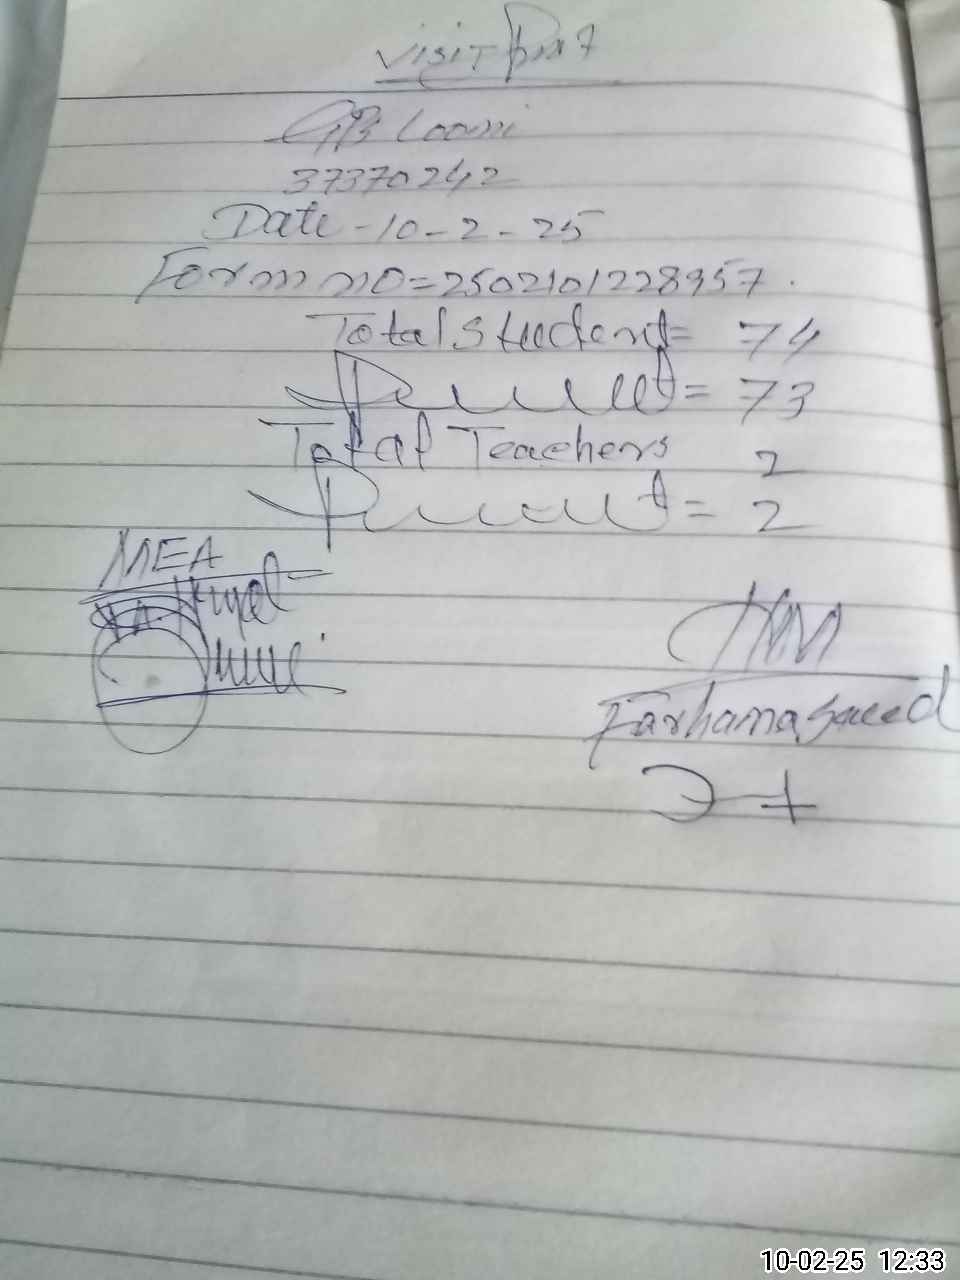 Visit
GPS Looni
37370242
Date - 10 - 2 - 25
Form no = 2502101228957.
Total Student = 74
Present = 73
Total Teachers 2
Present = 2
MEA
HM
Farhana Saeed
10-02-25 12:33